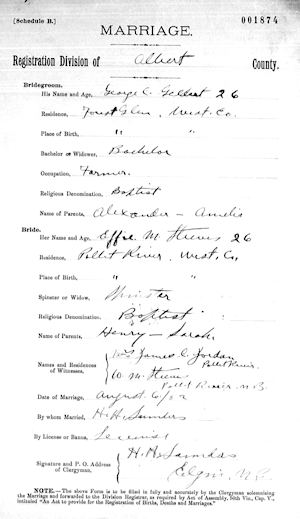 (Schedule B.) 001874
MARRIAGE.
Registration Division of Albert County.
Bridegroom.
His Name and Age, George C. Gellert 26
Residence, Forest Glen, West. Co.
Place of Birth, " "
Bachelor or Widower, Bachelor
Occupation, Farmer.
Religious Denomination, Baptist
Name of Parents, Alexander - Amelia
Bride.
Her Name and Age, Effie M Steeves 26
Residence, Pollet River, West. Co
Place of Birth, " "
Spinster or Widow, Spinster
Religious Denomination, Baptist
Name of Parents, Henry - Sarah
Names and Residences of Witnesses, James C Jordan
Pollet River
W. M. Steeves
Pollet River, N.B.
Date of Marriage, August 6/02
By whom Married, H. H. Saunders
By License or Banns, License
Signature and P. O. Address of Clergyman. H. H. Saunders
Elgin, N.B.
NOTE.—The above Form is to be filled in fully and accurately by the Clergyman solemnizing
the Marriage and forwarded to the Division Registrar, as required by Act of Assembly, 50th Vic., Cap. V.,
intituled "An Act to provide for the Registration of Births, Deaths and Marriages."